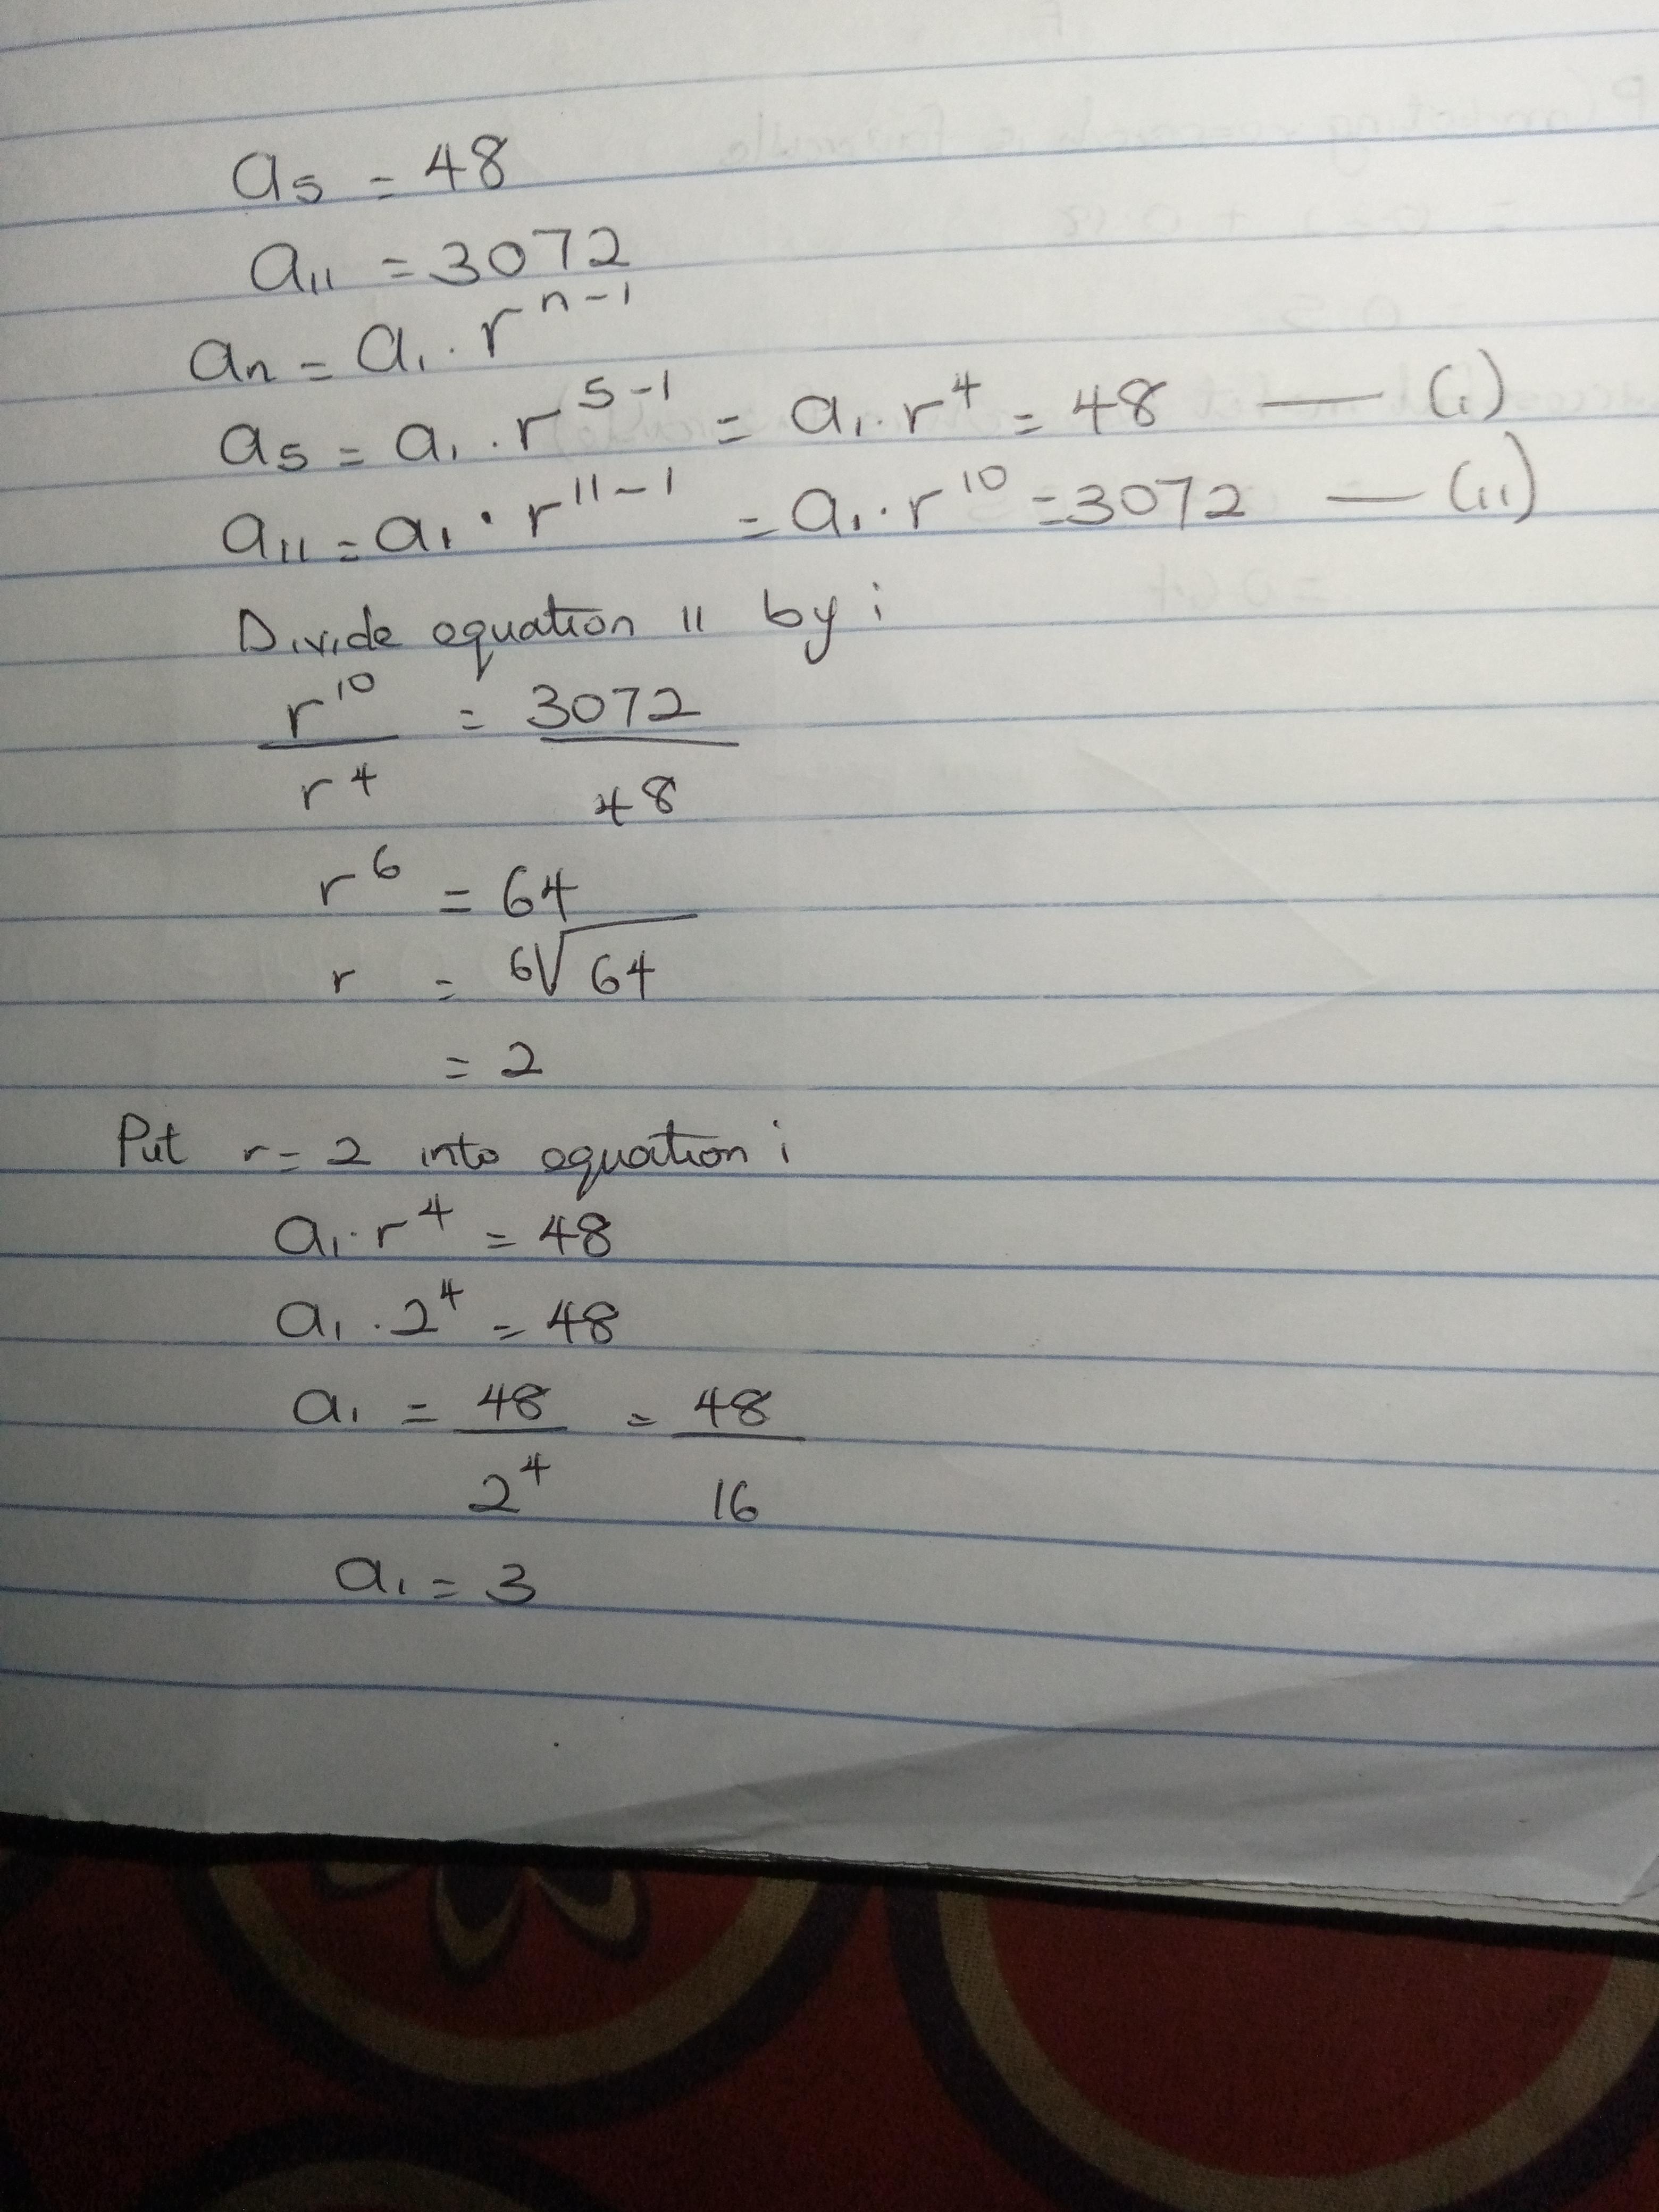 a₅ = 48
a₁₁ = 3072
aₙ = a₁ · rⁿ⁻¹
a₅ = a₁ · r⁵⁻¹ = a₁ · r⁴ = 48 — (i)
a₁₁ = a₁ · r¹¹⁻¹ = a₁ · r¹⁰ = 3072 — (ii)
Divide equation ii by i
r¹⁰/r⁴ = 3072/48
r⁶ = 64
r = ⁶√64
= 2
Put r = 2 into equation i
a₁ · r⁴ = 48
a₁ · 2⁴ = 48
a₁ = 48/2⁴ = 48/16
a₁ = 3